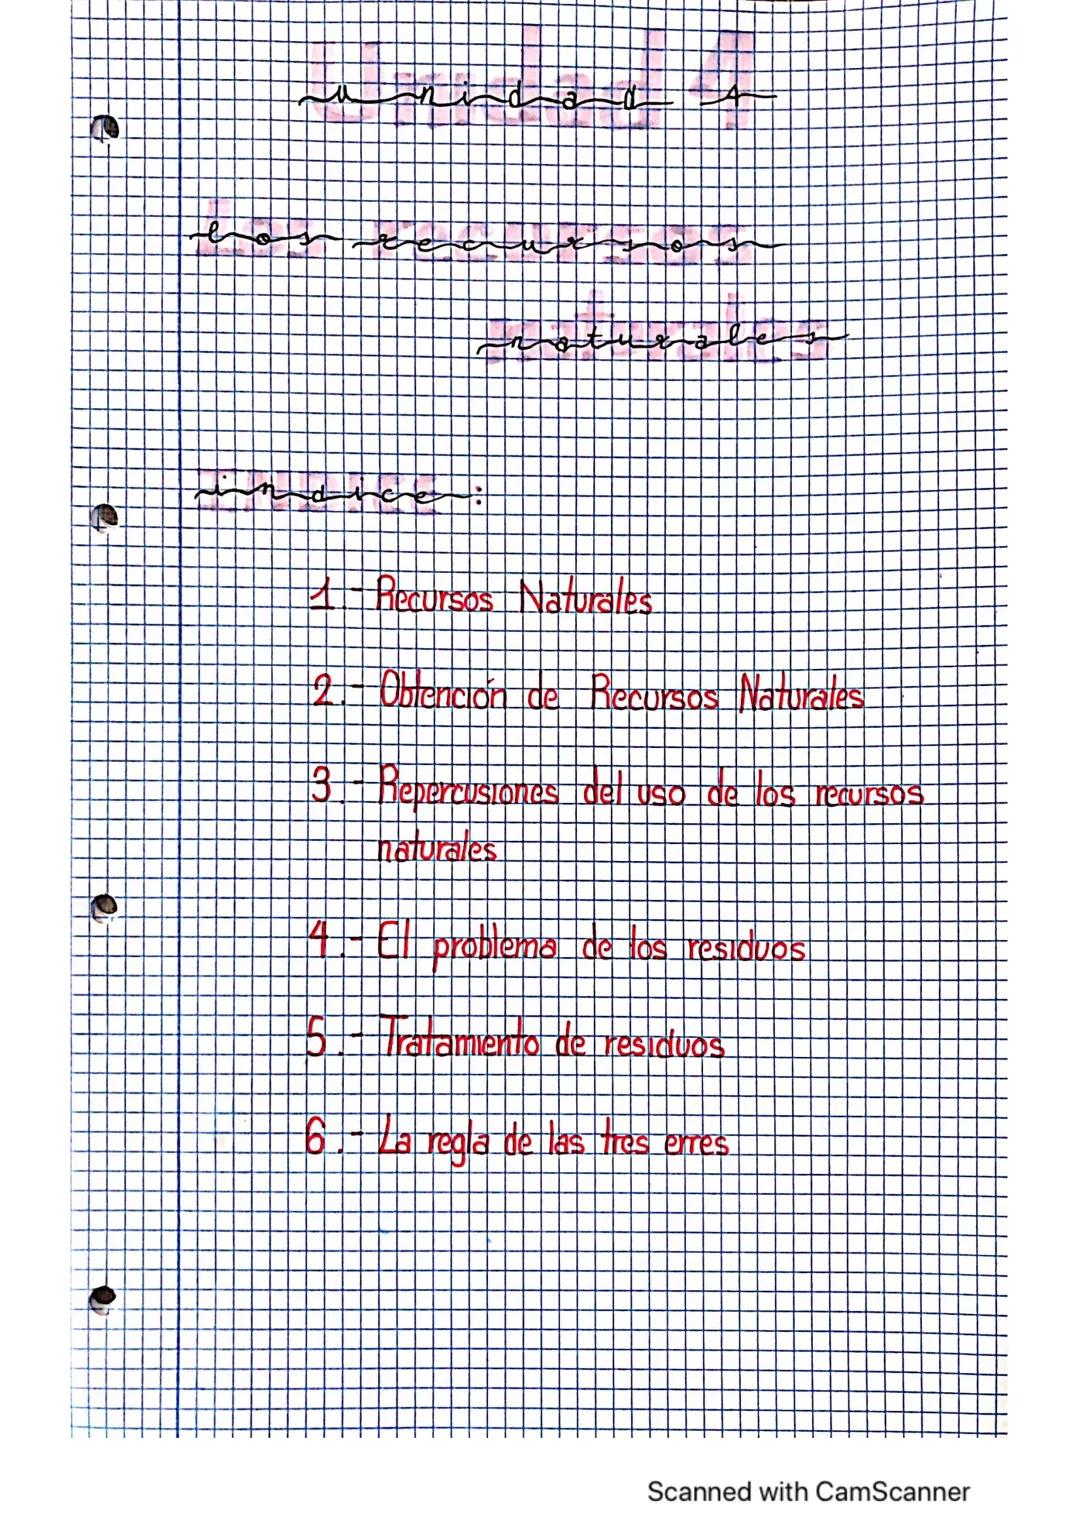 Unidad 4
Los recursos
naturales
Indice:
1.- Recursos Naturales
2.- Obtención de Recursos Naturales
3.- Repercusiones del uso de los recursos
naturales
4.- El problema de los residuos
5.- Tratamiento de residuos
6.- La regla de las tres erres
Scanned with CamScanner